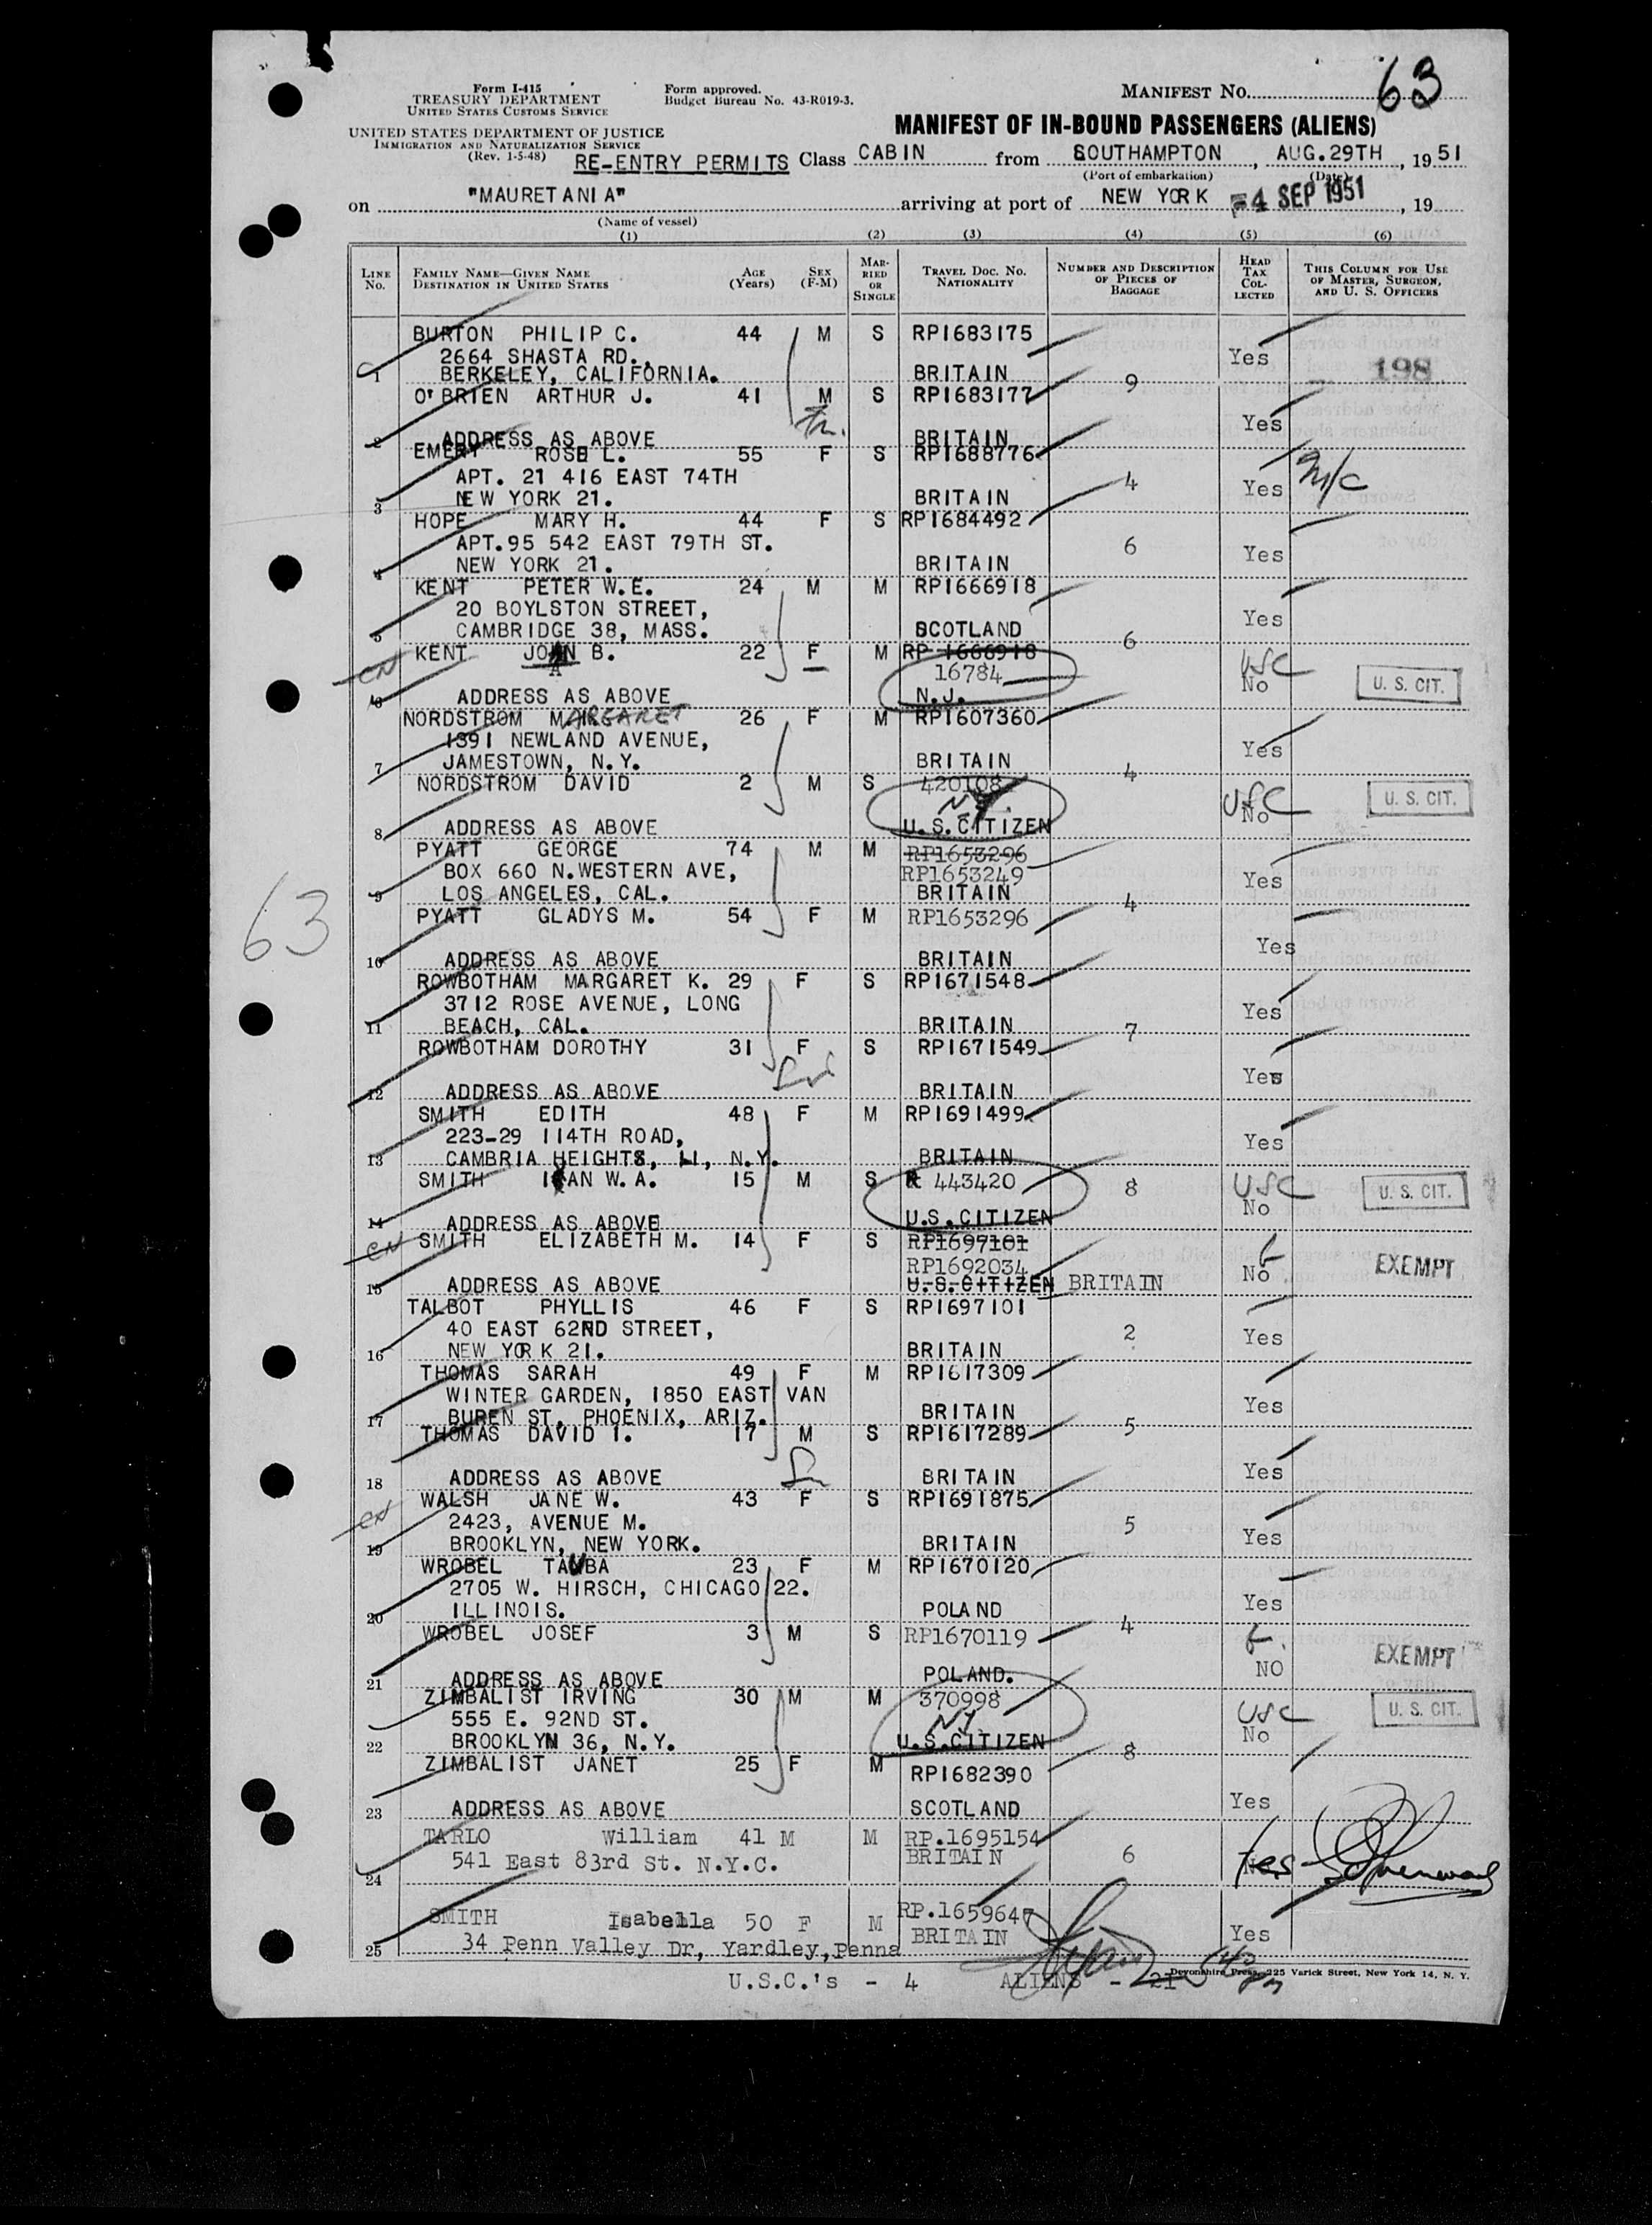 Form I-415
TREASURY DEPARTMENT
UNITED STATES CUSTOMS SERVICE
UNITED STATES DEPARTMENT OF JUSTICE
IMMIGRATION AND NATURALIZATION SERVICE
(Rev. 1-5-48)
Form approved.
Budget Bureau No. 43-R019-3.
MANIFEST NO. 63
MANIFEST OF IN-BOUND PASSENGERS (ALIENS)
RE-ENTRY PERMITS Class CABIN from SOUTHAMPTON, AUG.29TH, 1951
(Port of embarkation) (Date)
on "MAURETANIA" arriving at port of NEW YORK 4 SEP 1951, 19
(Name of vessel)
(1) (2) (3) (4) (5) (6)
LINE No. FAMILY NAME—GIVEN NAME DESTINATION IN UNITED STATES AGE (Years) SEX (F-M) MARRIED OR SINGLE TRAVEL DOC. NO. NATIONALITY NUMBER AND DESCRIPTION OF PIECES OF BAGGAGE HEAD TAX COLLECTED THIS COLUMN FOR USE OF MASTER, SURGEON, AND U. S. OFFICERS
BURTON PHILIP C. 44 M S RP1683175
2664 SHASTA RD., Yes 198
1 BERKELEY, CALIFORNIA. BRITAIN 9
O'BRIEN ARTHUR J. 41 M S RP1683177
Yes
2 ADDRESS AS ABOVE BRITAIN
EMERY ROSE L. 55 F S RP1688776
APT. 21 416 EAST 74TH 4 Yes M/C
3 NEW YORK 21. BRITAIN
HOPE MARY H. 44 F S RP1684492
APT.95 542 EAST 79TH ST. 6 Yes
4 NEW YORK 21. BRITAIN
KENT PETER W.E. 24 M M RP1666918
20 BOYLSTON STREET, Yes
5 CAMBRIDGE 38, MASS. SCOTLAND 6
KENT JOAN B. 22 F M RP 1666918
A 16784 USC No U. S. CIT.
6 ADDRESS AS ABOVE N.J.
NORDSTROM MARGARET 26 F M RP1607360
1391 NEWLAND AVENUE, Yes
7 JAMESTOWN, N.Y. BRITAIN 4
NORDSTROM DAVID 2 M S 420108
NY. USC No U. S. CIT.
8 ADDRESS AS ABOVE U.S.CITIZEN
PYATT GEORGE 74 M M RP1653296
BOX 660 N.WESTERN AVE, RP1653249 Yes
9 LOS ANGELES, CAL. BRITAIN 4
PYATT GLADYS M. 54 F M RP1653296
Yes
10 ADDRESS AS ABOVE BRITAIN
63
ROWBOTHAM MARGARET K. 29 F S RP1671548
3712 ROSE AVENUE, LONG Yes
11 BEACH, CAL. BRITAIN 7
ROWBOTHAM DOROTHY 31 F S RP1671549
Yes
12 ADDRESS AS ABOVE BRITAIN
SMITH EDITH 48 F M RP1691499
223-29 114TH ROAD, Yes
13 CAMBRIA HEIGHTS, LI, N.Y. BRITAIN
SMITH IAN W.A. 15 M S 443420 8 USC U. S. CIT.
No
14 ADDRESS AS ABOVE U.S.CITIZEN
SMITH ELIZABETH M. 14 F S RP1697101
RP1692034 No EXEMPT
15 ADDRESS AS ABOVE U.S.CITIZEN BRITAIN
TALBOT PHYLLIS 46 F S RP1697101
40 EAST 62ND STREET, 2 Yes
16 NEW YORK 21. BRITAIN
THOMAS SARAH 49 F M RP1617309
WINTER GARDEN, 1850 EAST VAN Yes
17 BUREN ST, PHOENIX, ARIZ. BRITAIN 5
THOMAS DAVID I. 17 M S RP1617289
Yes
18 ADDRESS AS ABOVE BRITAIN
WALSH JANE W. 43 F S RP1691875
2423, AVENUE M. 5 Yes
19 BROOKLYN, NEW YORK. BRITAIN
WROBEL TAUBA 23 F M RP1670120
2705 W. HIRSCH, CHICAGO 22. Yes
20 ILLINOIS. POLAND 4
WROBEL JOSEF 3 M S RP1670119
NO EXEMPT
21 ADDRESS AS ABOVE POLAND.
ZIMBALIST IRVING 30 M M 370998
555 E. 92ND ST. NY. USC No U. S. CIT.
22 BROOKLYN 36, N.Y. U.S.CITIZEN 8
ZIMBALIST JANET 25 F M RP1682390
Yes
23 ADDRESS AS ABOVE SCOTLAND
TARLO William 41 M M RP.1695154
541 East 83rd St. N.Y.C. BRITAIN 6 Yes
24
SMITH Isabella 50 F M RP.165964
BRITAIN Yes
25 34 Penn Valley Dr, Yardley,Penna
Devonshire Press, 225 Varick Street, New York 14, N. Y.
U.S.C.'s - 4 ALIENS - 21